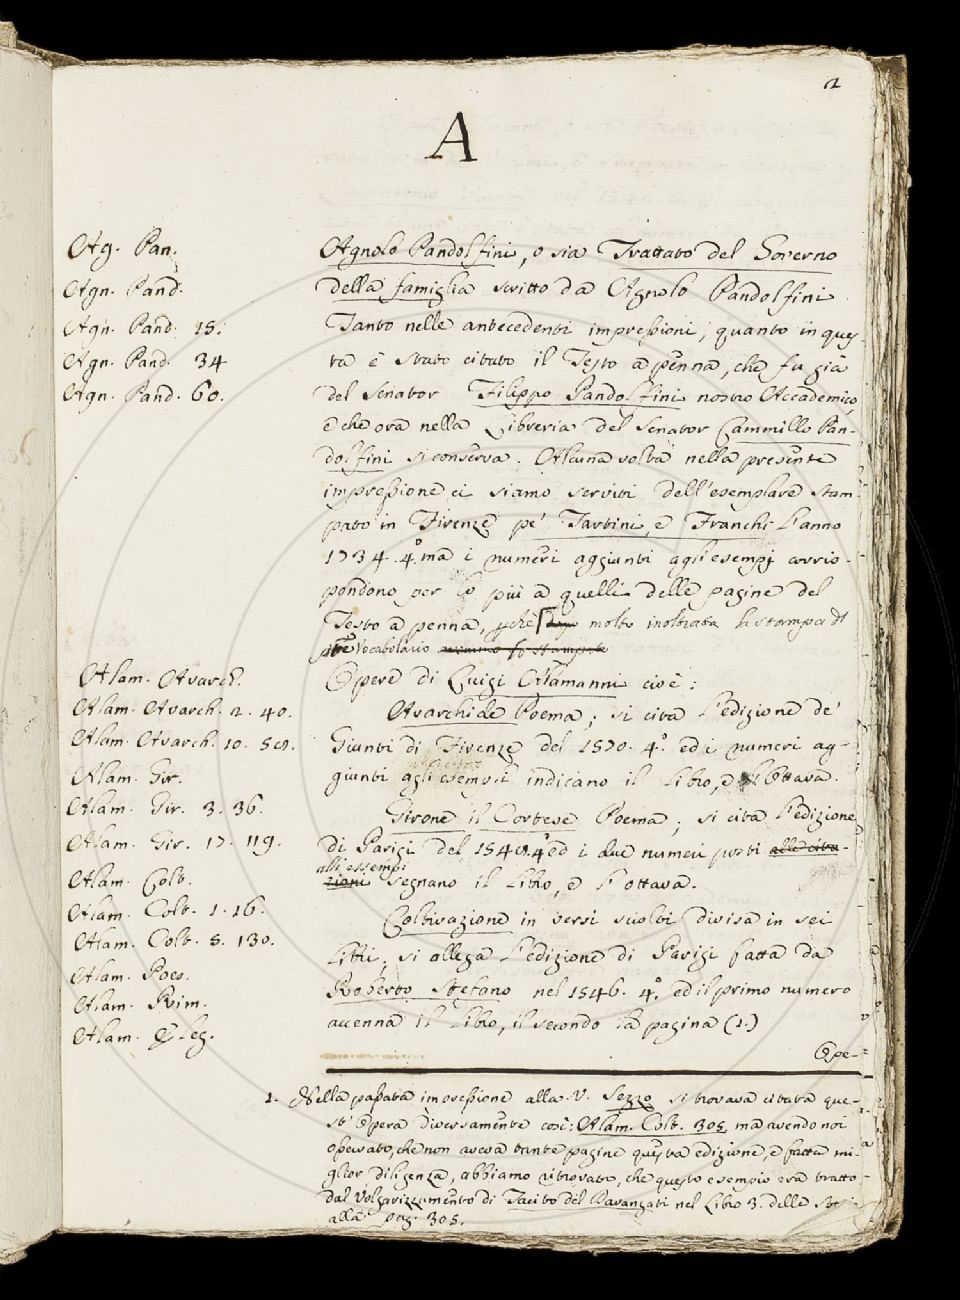 2
A
Ag. Pan.
Agn. Pand.
Agn. Pand. 15.
Agn. Pand. 34
Agn. Pand. 60.
Agnolo Pandolfini, o sia Trattato del Governo
della famiglia scritto da Agnolo Pandolfini.
Tanto nelle antecedenti impressioni, quanto in ques-
ta è stato citato il Testo a penna, che fu già
del Senator Filippo Pandolfini nostro Accademico,
e che ora nella Libreria del Senator Cammillo Pan-
dolfini si conserva. Alcuna volta nella presente
impressione ci siamo serviti dell'esemplare stam-
pato in Firenze pe' Tartini, e Franchi l'anno
1734. 4.º ma i numeri aggiunti agli esempj corris-
pondono per lo più a quelli delle pagine del
Testo a penna, molto inoltrata la stampa dl
pñte Vocabolario
Alam. Avarch.
Alam. Avarch. 2. 40.
Alam. Avarch. 10. 59.
Alam. Gir.
Alam. Gir. 3. 36.
Alam. Gir. 17. 119.
Alam. Colt.
Alam. Colt. 1. 16.
Alam. Colt. 5. 130.
Alam. Poes.
Alam. Rim.
Alam. Eleg.
Opere di Luigi Alamanni cioè:
Avarchide Poema; si cita l'edizione de'
Giunti di Firenze del 1570. 4.º ed i numeri ag-
giunti agli esempli indicano il Libro, e l'Ottava.
Girone il Cortese Poema; si cita l'edizione
di Parigi del 1548. 4.º ed i due numeri posti alle cita-
alli essempi
zioni segnano il Libro, e l'ottava.
Coltivazione in versi sciolti divisa in sei
Libri; si allega l'edizione di Parigi fatta da
Roberto Stefano nel 1546. 4.º ed il primo numero
accenna il Libro, il secondo la pagina (1.)
Ope-
1. Nella passata impressione alla V. Sezzo si trovava citata que-
st'opera diversamente così: Alam. Colt. 305. ma avendo noi
operato, che non aveva tante pagine questa edizione, e fatta mi-
glior diligenza, abbiamo ritrovato, che questo esempio era tratto
dal Volgarizzamento di Tacito del Davanzati nel Libro 3. delle Stor
alla pag. 305.